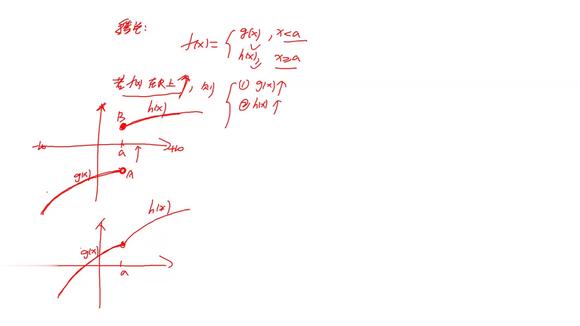 f(x)= { g(x), x<a
h(x), x≥a
若f(x)在R上↑, 则 { ① g(x)↑
② h(x)↑
B h(x)
-∞ a ↑ +∞
g(x) A
h(x)
g(x)
a